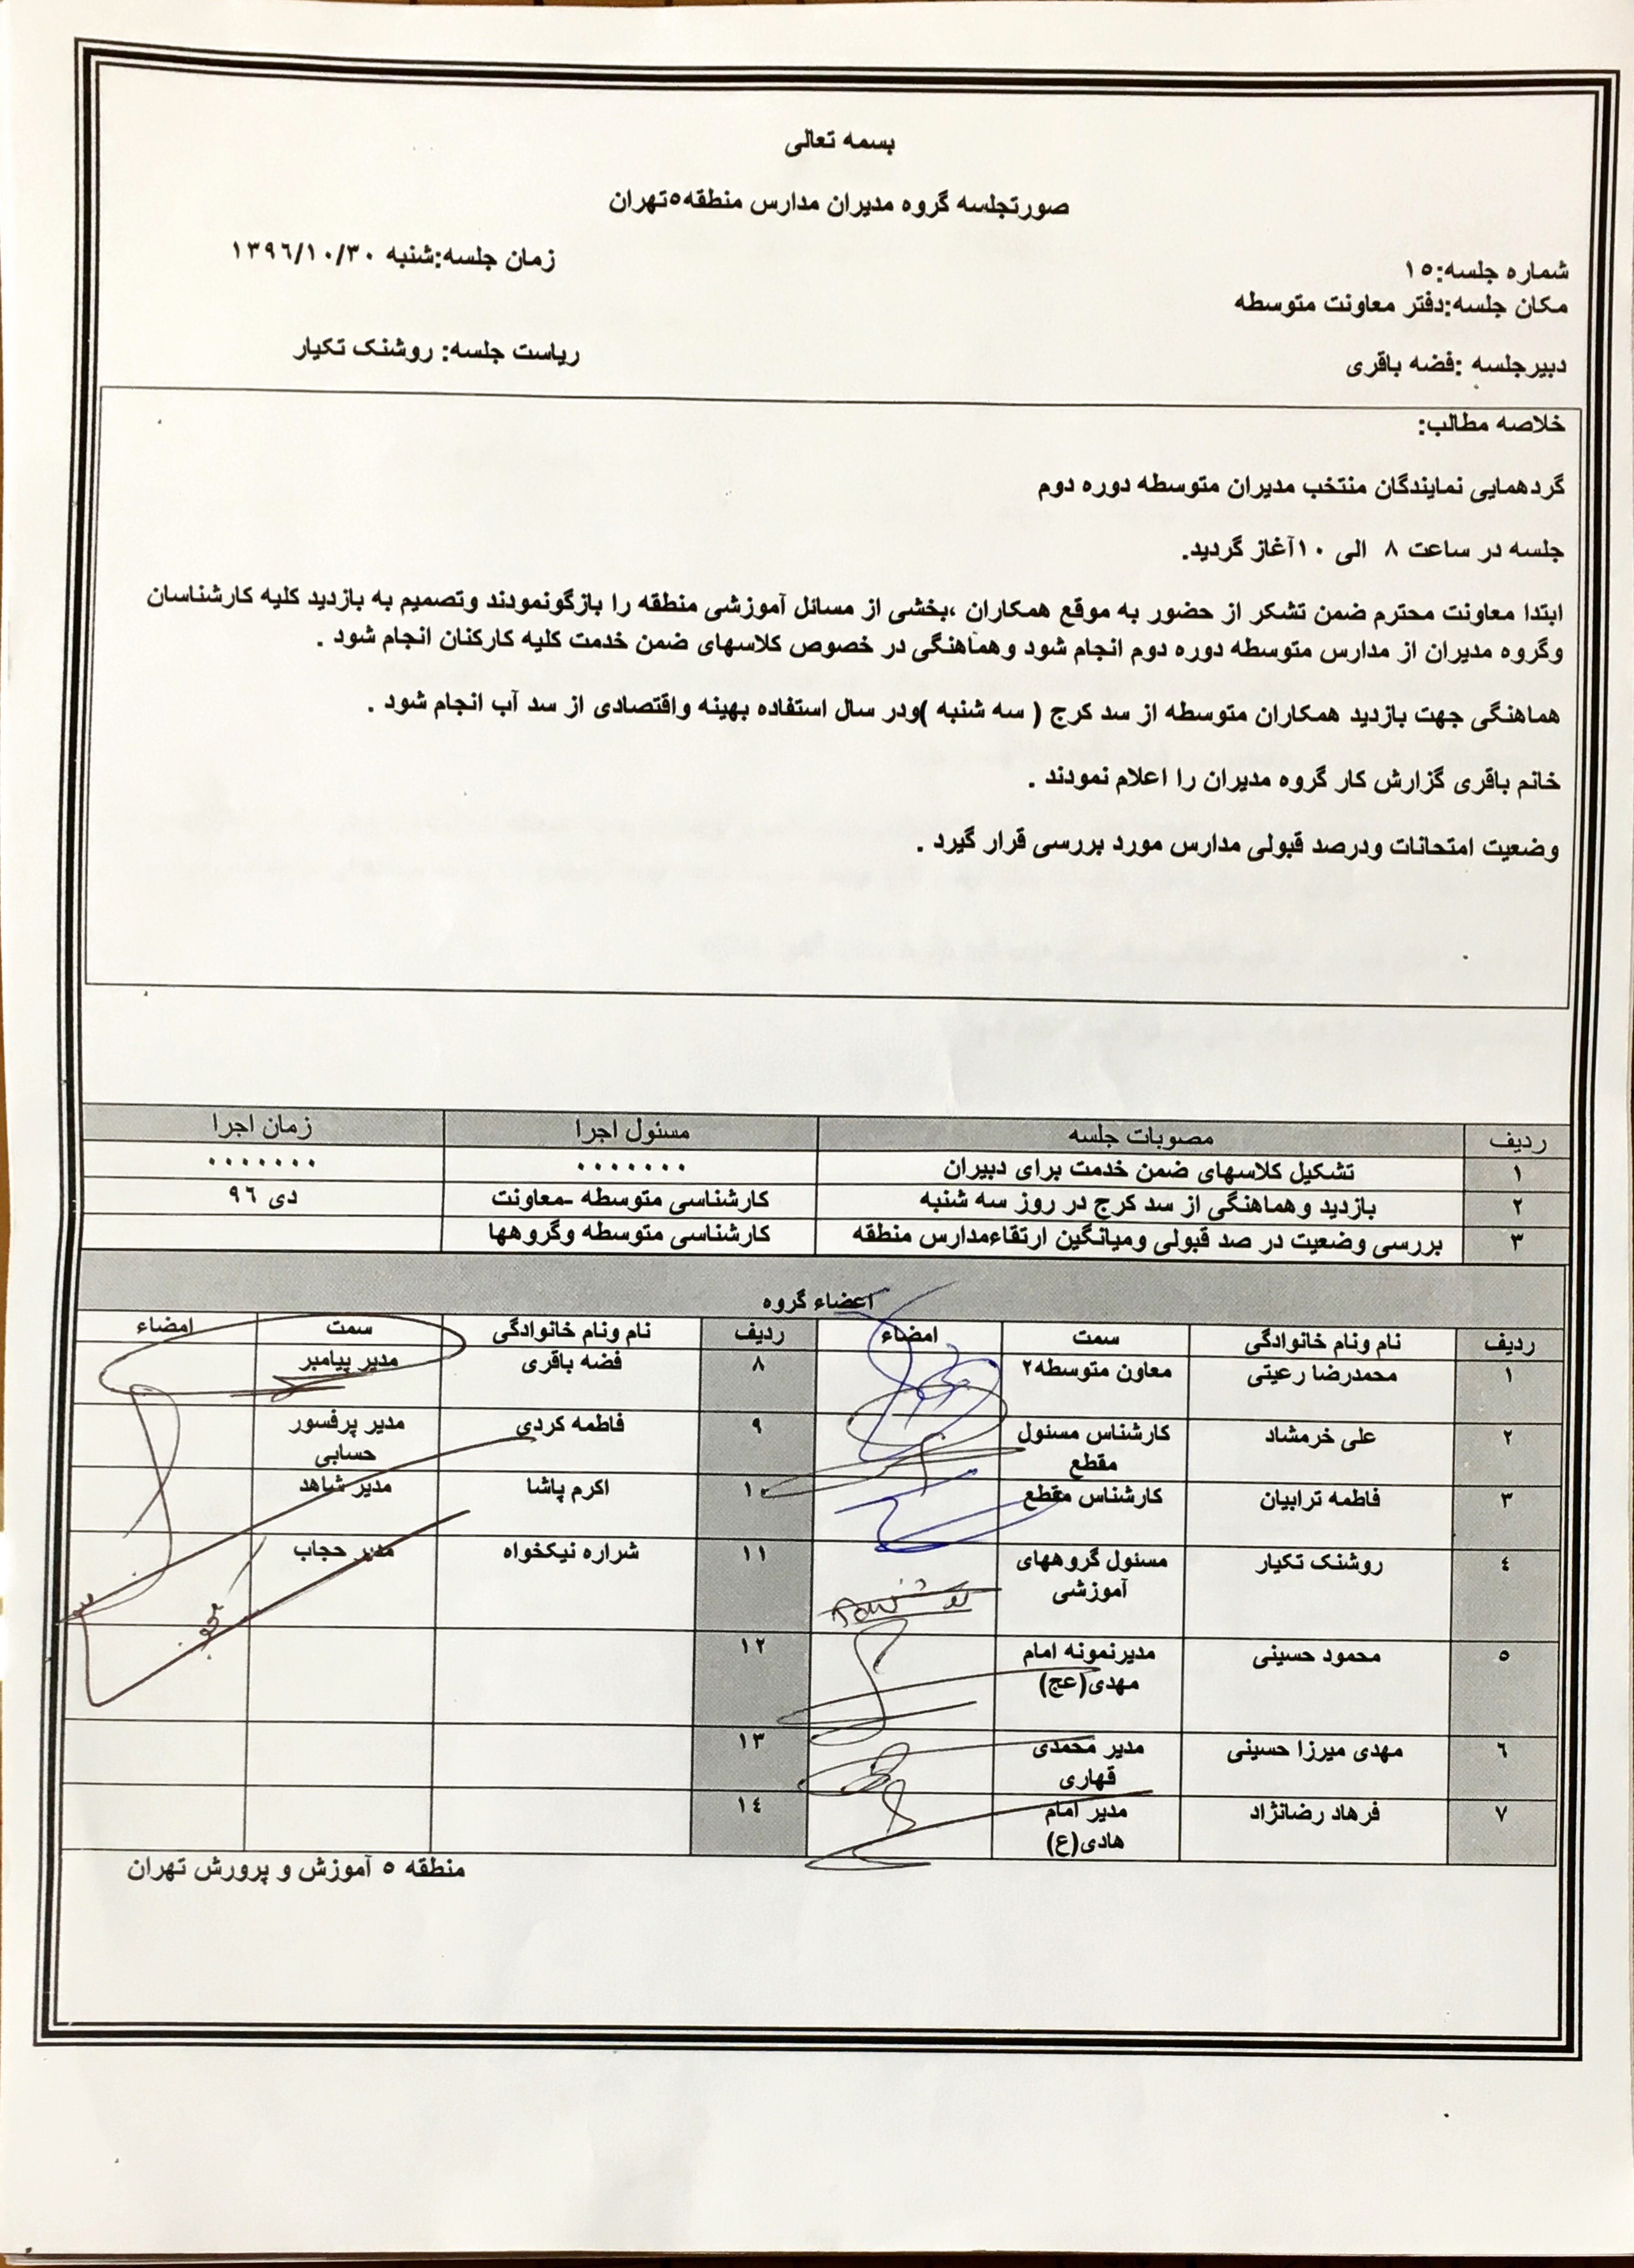 بسمه تعالی
صورتجلسه گروه مدیران مدارس منطقه٥تهران
شماره جلسه:١٥
زمان جلسه:شنبه ١٣٩٦/١٠/٣٠
مکان جلسه:دفتر معاونت متوسطه
دبیرجلسه :فضه باقری
ریاست جلسه: روشنک تکیار
خلاصه مطالب:
گردهمایی نمایندگان منتخب مدیران متوسطه دوره دوم
جلسه در ساعت ٨ الی ١٠آغاز گردید.
ابتدا معاونت محترم ضمن تشکر از حضور به موقع همکاران ،بخشی از مسائل آموزشی منطقه را بازگونمودند وتصمیم به بازدید کلیه کارشناسان
وگروه مدیران از مدارس متوسطه دوره دوم انجام شود وهماهنگی در خصوص کلاسهای ضمن خدمت کلیه کارکنان انجام شود .
هماهنگی جهت بازدید همکاران متوسطه از سد کرج ( سه شنبه )ودر سال استفاده بهینه واقتصادی از سد آب انجام شود .
خانم باقری گزارش کار گروه مدیران را اعلام نمودند .
وضعیت امتحانات ودرصد قبولی مدارس مورد بررسی قرار گیرد .
ردیف مصوبات جلسه مسئول اجرا زمان اجرا
١ تشکیل کلاسهای ضمن خدمت برای دبیران ٠٠٠٠٠٠٠ ٠٠٠٠٠٠٠
٢ بازدید وهماهنگی از سد کرج در روز سه شنبه کارشناسی متوسطه -معاونت دی ٩٦
٣ بررسی وضعیت در صد قبولی ومیانگین ارتقاءمدارس منطقه کارشناسی متوسطه وگروهها
اعضاء گروه
ردیف نام ونام خانوادگی سمت امضاء ردیف نام ونام خانوادگی سمت امضاء
١ محمدرضا رعیتی معاون متوسطه٢ ٨ فضه باقری مدیر پیامبر
٢ علی خرمشاد کارشناس مسئول ٩ فاطمه کردی مدیر پرفسور
مقطع حسابی
٣ فاطمه ترابیان کارشناس مقطع ١٠ اکرم پاشا مدیر شاهد
٤ روشنک تکیار مسئول گروههای ١١ شراره نیکخواه مدیر حجاب
آموزشی
٥ محمود حسینی مدیرنمونه امام ١٢
مهدی(عج)
٦ مهدی میرزا حسینی مدیر محمدی ١٣
قهاری
٧ فرهاد رضانژاد مدیر امام ١٤
هادی(ع)
منطقه ٥ آموزش و پرورش تهران